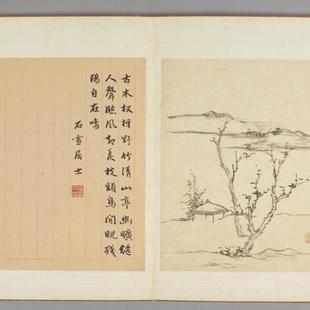 古木杈枒野竹清山亭幽曠絕
人聲臨風却羨枝頭鳥閒殘
陽自在鳴
石雪居士